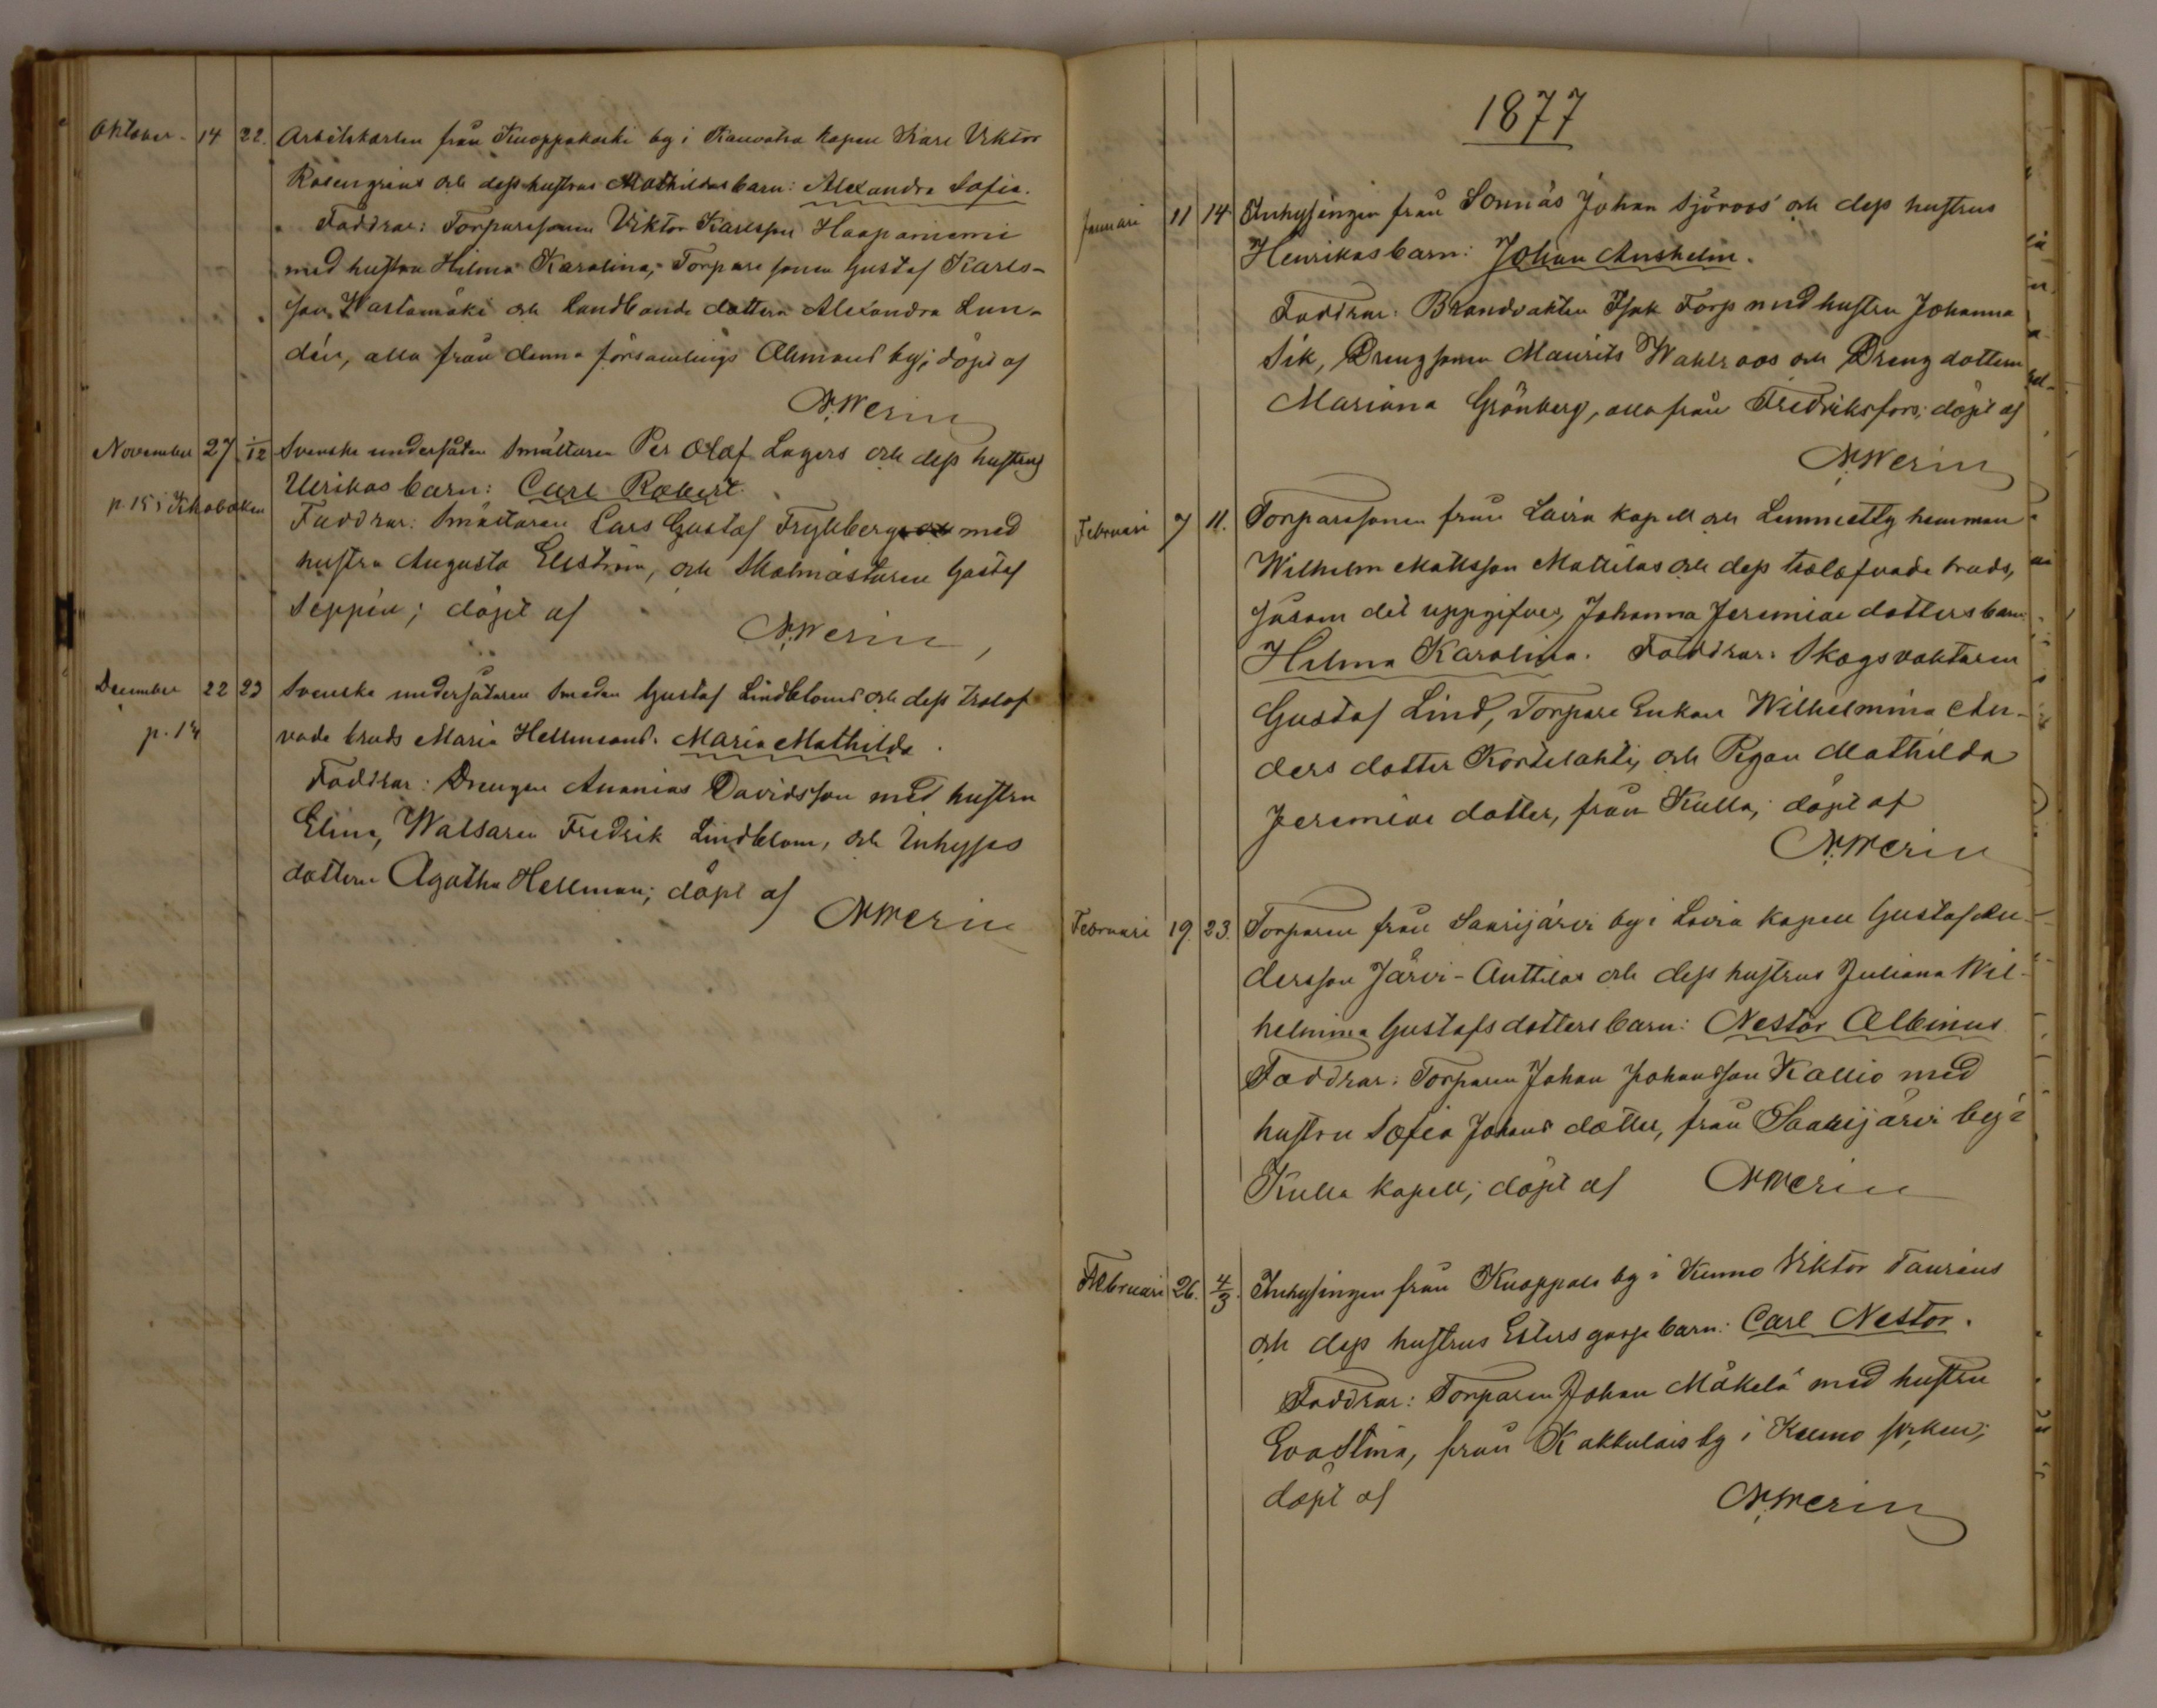 Oktober 14 22. Arbetskarlen från Knoppokoski by i Kauvatsa kapell Karl Viktor
Rosengrens och dess hustrus Mathildas barn: Alexandra Sofia.
Faddrar: Torparesonen Viktor Karlsson Haapaniemi
med hustru Hilma Karolina, Torpare sonen Gustaf Karls-
son Wastamäki och Landbonde dottern Alexandra Lun-
dén, alla från denna församlings Ahmans by; döpt af
N. Merin
November 27 1/12 Svenske undersåten Smältaren Per Olof Lagers och dess hustrus
Ulrikas barn: Carl Robert.
p. 15 i Kkoboken
Faddrar: Smältaren Lars Gustaf Frykberg med
hustru Augusta Elström, och Skolmästaren Gustaf
Seppén; döpt af
N. Merin
December 22 23 Svenske undersåtaren Smeden Gustaf Lindbloms och dess trolof
p. 14 vade bruds Maria Hellmans. Maria Mathilda.
Faddrar: Drengen Ananias Davidsson med hustru
Elina, Walsaren Fredrik Lindblom, och Inhyses
dottern Agatha Hellman; döpt af
N Merin
1877
Januari 11 14 Inhysingen från Sonnäs Johan Sjöroos och dess hustrus
Henrikas barn: Johan Anshelm.
Faddrar: Brandvakten Isak Forss med hustru Johanna
Sik, Drengsonen Maurits Wahlroos och Dreng dottern
Mariana Grönberg, alla från Fredriksfors; döpt af
N. Merin
Februari 7 11. Torparesonen från Lavia kapell och Lemmetty hemman
Wilhelm Mattsson Mattilas och dess trolofvade bruds,
såsom det uppgifves, Johanna Jeremiae dotters barn
Hilma Karolina. Faddrar: Skogsvaktaren
Gustaf Lind, Torpare Enkan Wilhelmina An-
ders dotter Kortelahti, och Pigan Mathilda
Jeremiae dotter, från Kulla; döpt af
N. Merin
Februari 19. 23. Torparen från Saarijärvi by i Lavia kapell Gustaf An-
dersson Järvi-Anttilas och dess hustrus Juliana Wil-
helmina Gustafsdotters barn: Nestor Albinus
Faddrar: Torparen Johan Johansson Kallio med
hustru Sofia Johans dotter, från Saarijärvi by i
Kulla kapell; döpt af N Merin
Februari 26. 4/3. Inhysingen från Knoppala by i Kumo Viktor Tauréns
och dess hustrus Esters gosse barn: Carl Nestor.
Faddrar: Torparen Johan Mäkelä med hustru
Eva Stina, från Kakkulais by i Kumo socken;
döpt af N. Merin